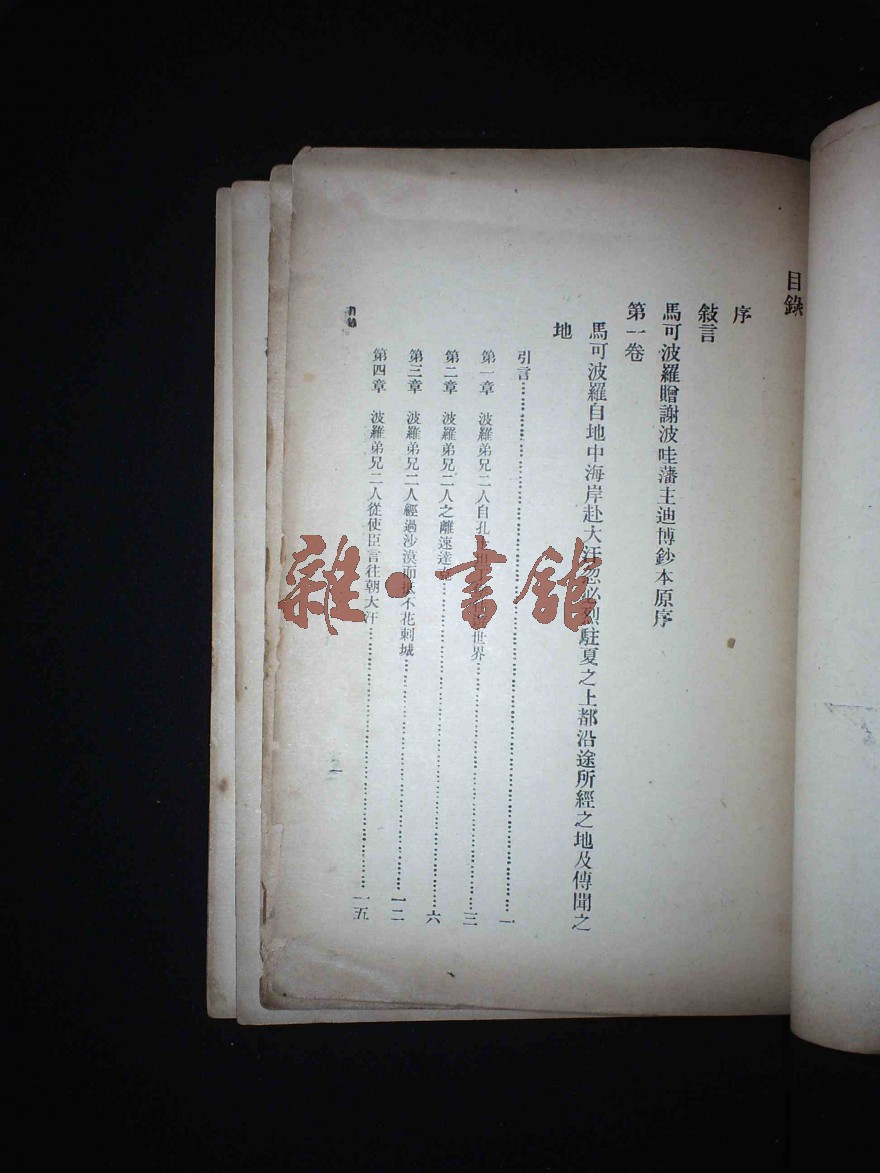 目錄
序
敍言
馬可波羅贈謝波哇藩主迪博鈔本原序
第一卷
馬可波羅自地中海岸赴大汗忽必烈駐夏之上都沿途所經之地及傳聞之
地
引言……一
第一章 波羅弟兄二人自孔 世界……三
第二章 波羅弟兄二人之離速達……六
第三章 波羅弟兄二人經過沙漠而抵不花剌城……一二
第四章 波羅弟兄二人從使臣言往朝大汗……一五
目錄
一
雜·書館